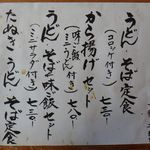 うどん そば定食
(コロッケ付き) 七三〇
から揚げセット
(味ご飯 ミニうどん付き) 七八〇
うどん そば 味ご飯セット
(ミニサラダ付き) 七三〇
たぬきうどん そば定食